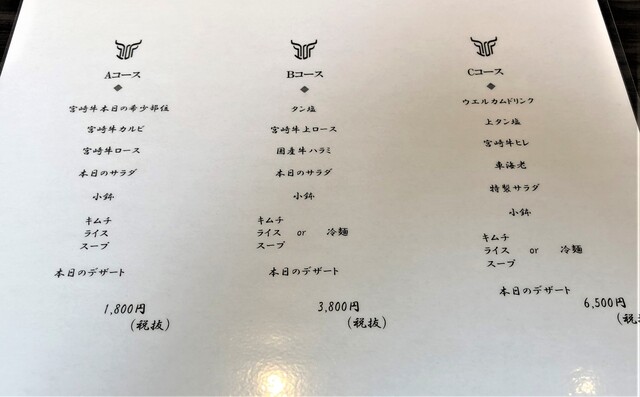 Aコース
宮崎牛本日の希少部位
宮崎牛カルビ
宮崎牛ロース
本日のサラダ
小鉢
キムチ
ライス
スープ
本日のデザート
1,800円
(税抜)
Bコース
タン塩
宮崎牛上ロース
国産牛ハラミ
本日のサラダ
小鉢
キムチ
ライス or 冷麺
スープ
本日のデザート
3,800円
(税抜)
Cコース
ウエルカムドリンク
上タン塩
宮崎牛ヒレ
車海老
特製サラダ
小鉢
キムチ
ライス or 冷麺
スープ
本日のデザート
6,500円
(税